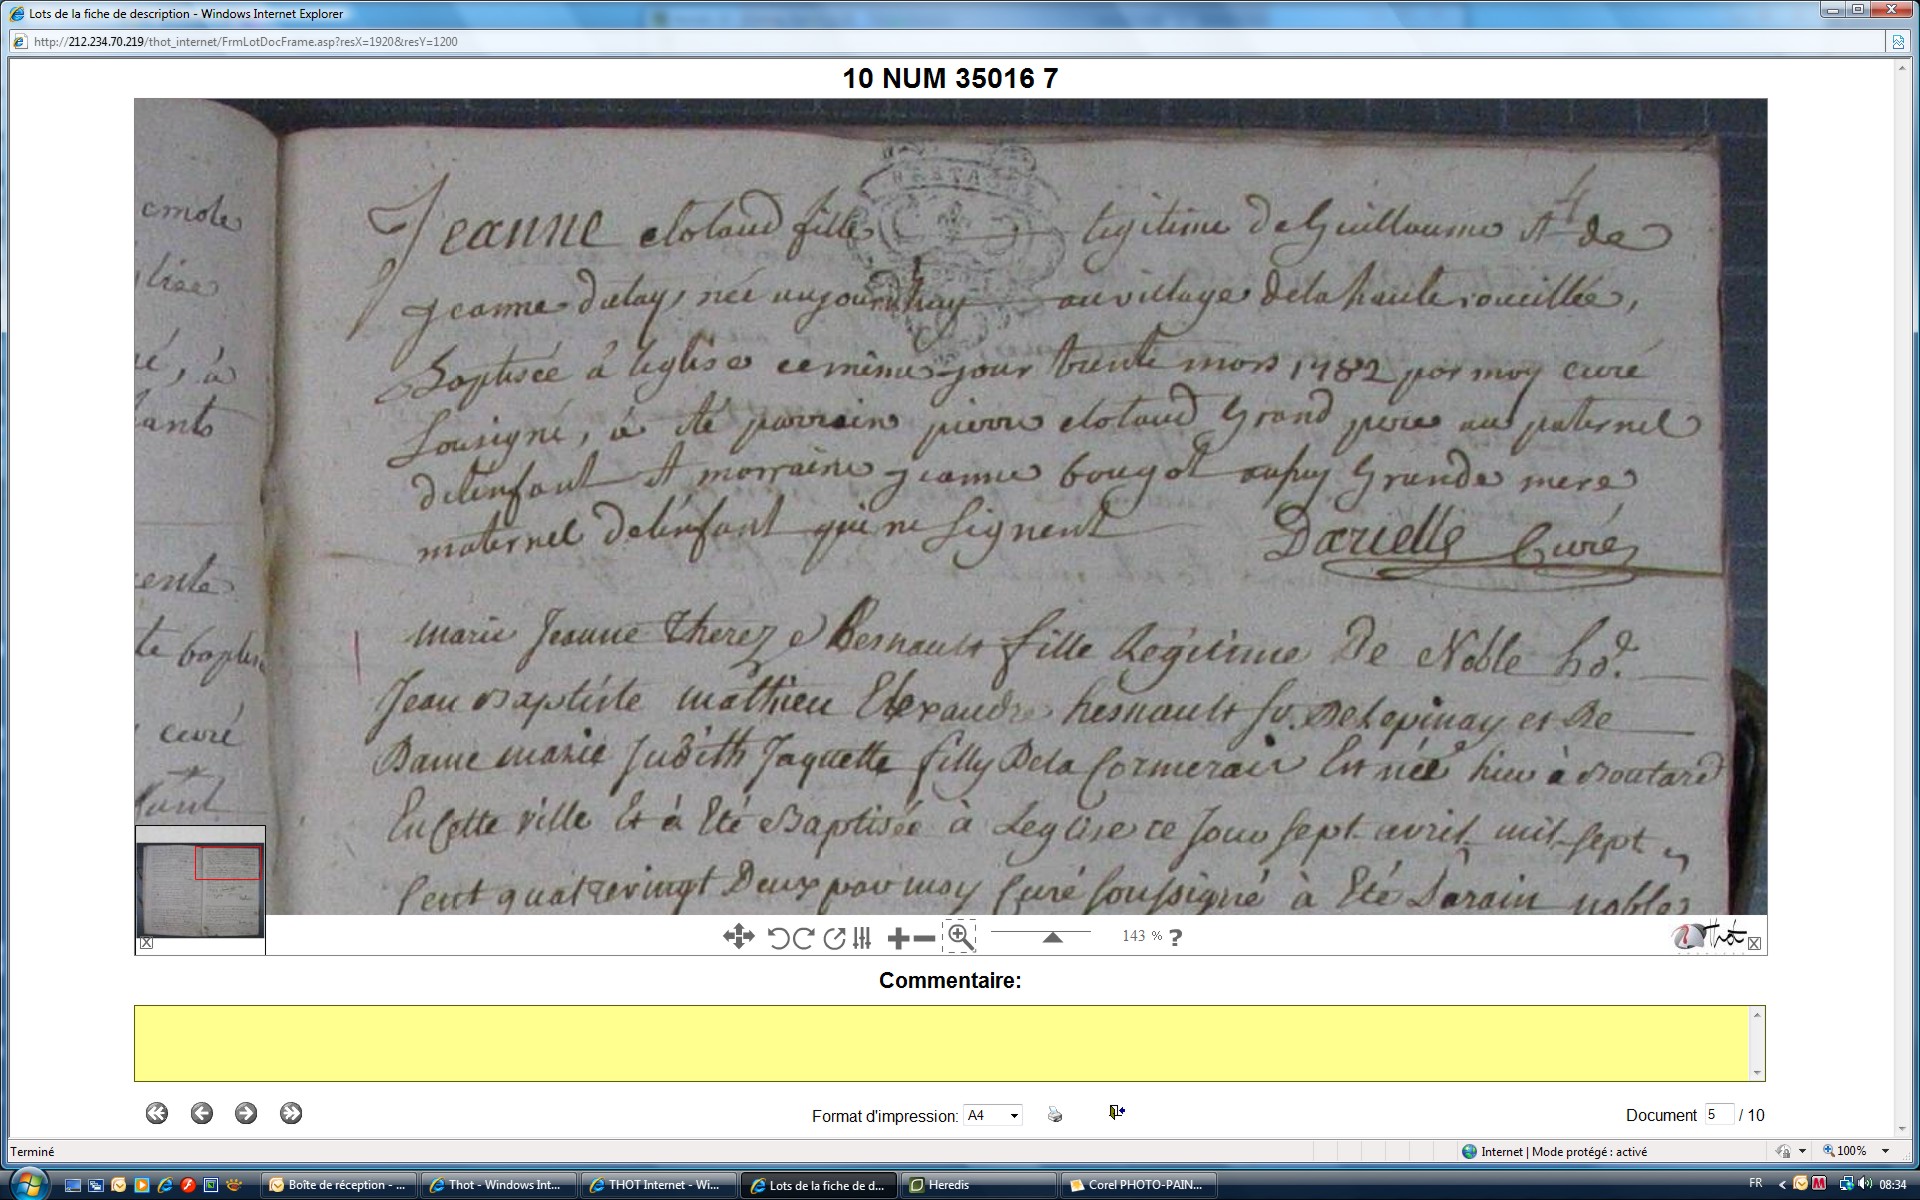 Lots de la fiche de description - Windows Internet Explorer
http://212.234.70.219/thot_internet/FrmLotDocFrame.asp?resX=1920&resY=1200
10 NUM 35016 7
BRETAGNE
Jeanne clolaud fille legitime de Guillaume Et de
jeanne dalay, née aujourdhuy au village de la haute
Baptisée à leglise ce même jour trente mars 1782 par moy curé
Sousigné, à été parrain pierre clolaud Grand pere au paternel
delenfant Et marraine jeanne bougot Grande mere
maternel delenfant qui ne Signent Darielle Curé
marie Jeanne therese hesnault fille Legitime De Noble ho.
Jean Baptiste mathieu Alexandre hesnault Sr. De Lepinay et De
Dame marie Judith Jaquette filly De la Cormerair Est née hier à
En Cette ville Et à Eté Baptisée à Leglise ce Jour sept avril mil sept
Cent quatrevingt Deux par moy Curé Soussigné à Eté Parain noble
emole
glise
né, à
fants
cente
te baptis
curé
fant
143 % ?
Thot
Commentaire:
Format d'impression: A4
Document 5 / 10
Terminé
Internet | Mode protégé : activé
100%
Boîte de réception - ...
Thot - Windows Int...
THOT Internet - Wi...
Lots de la fiche de d...
Heredis
Corel PHOTO-PAIN...
FR
08:34